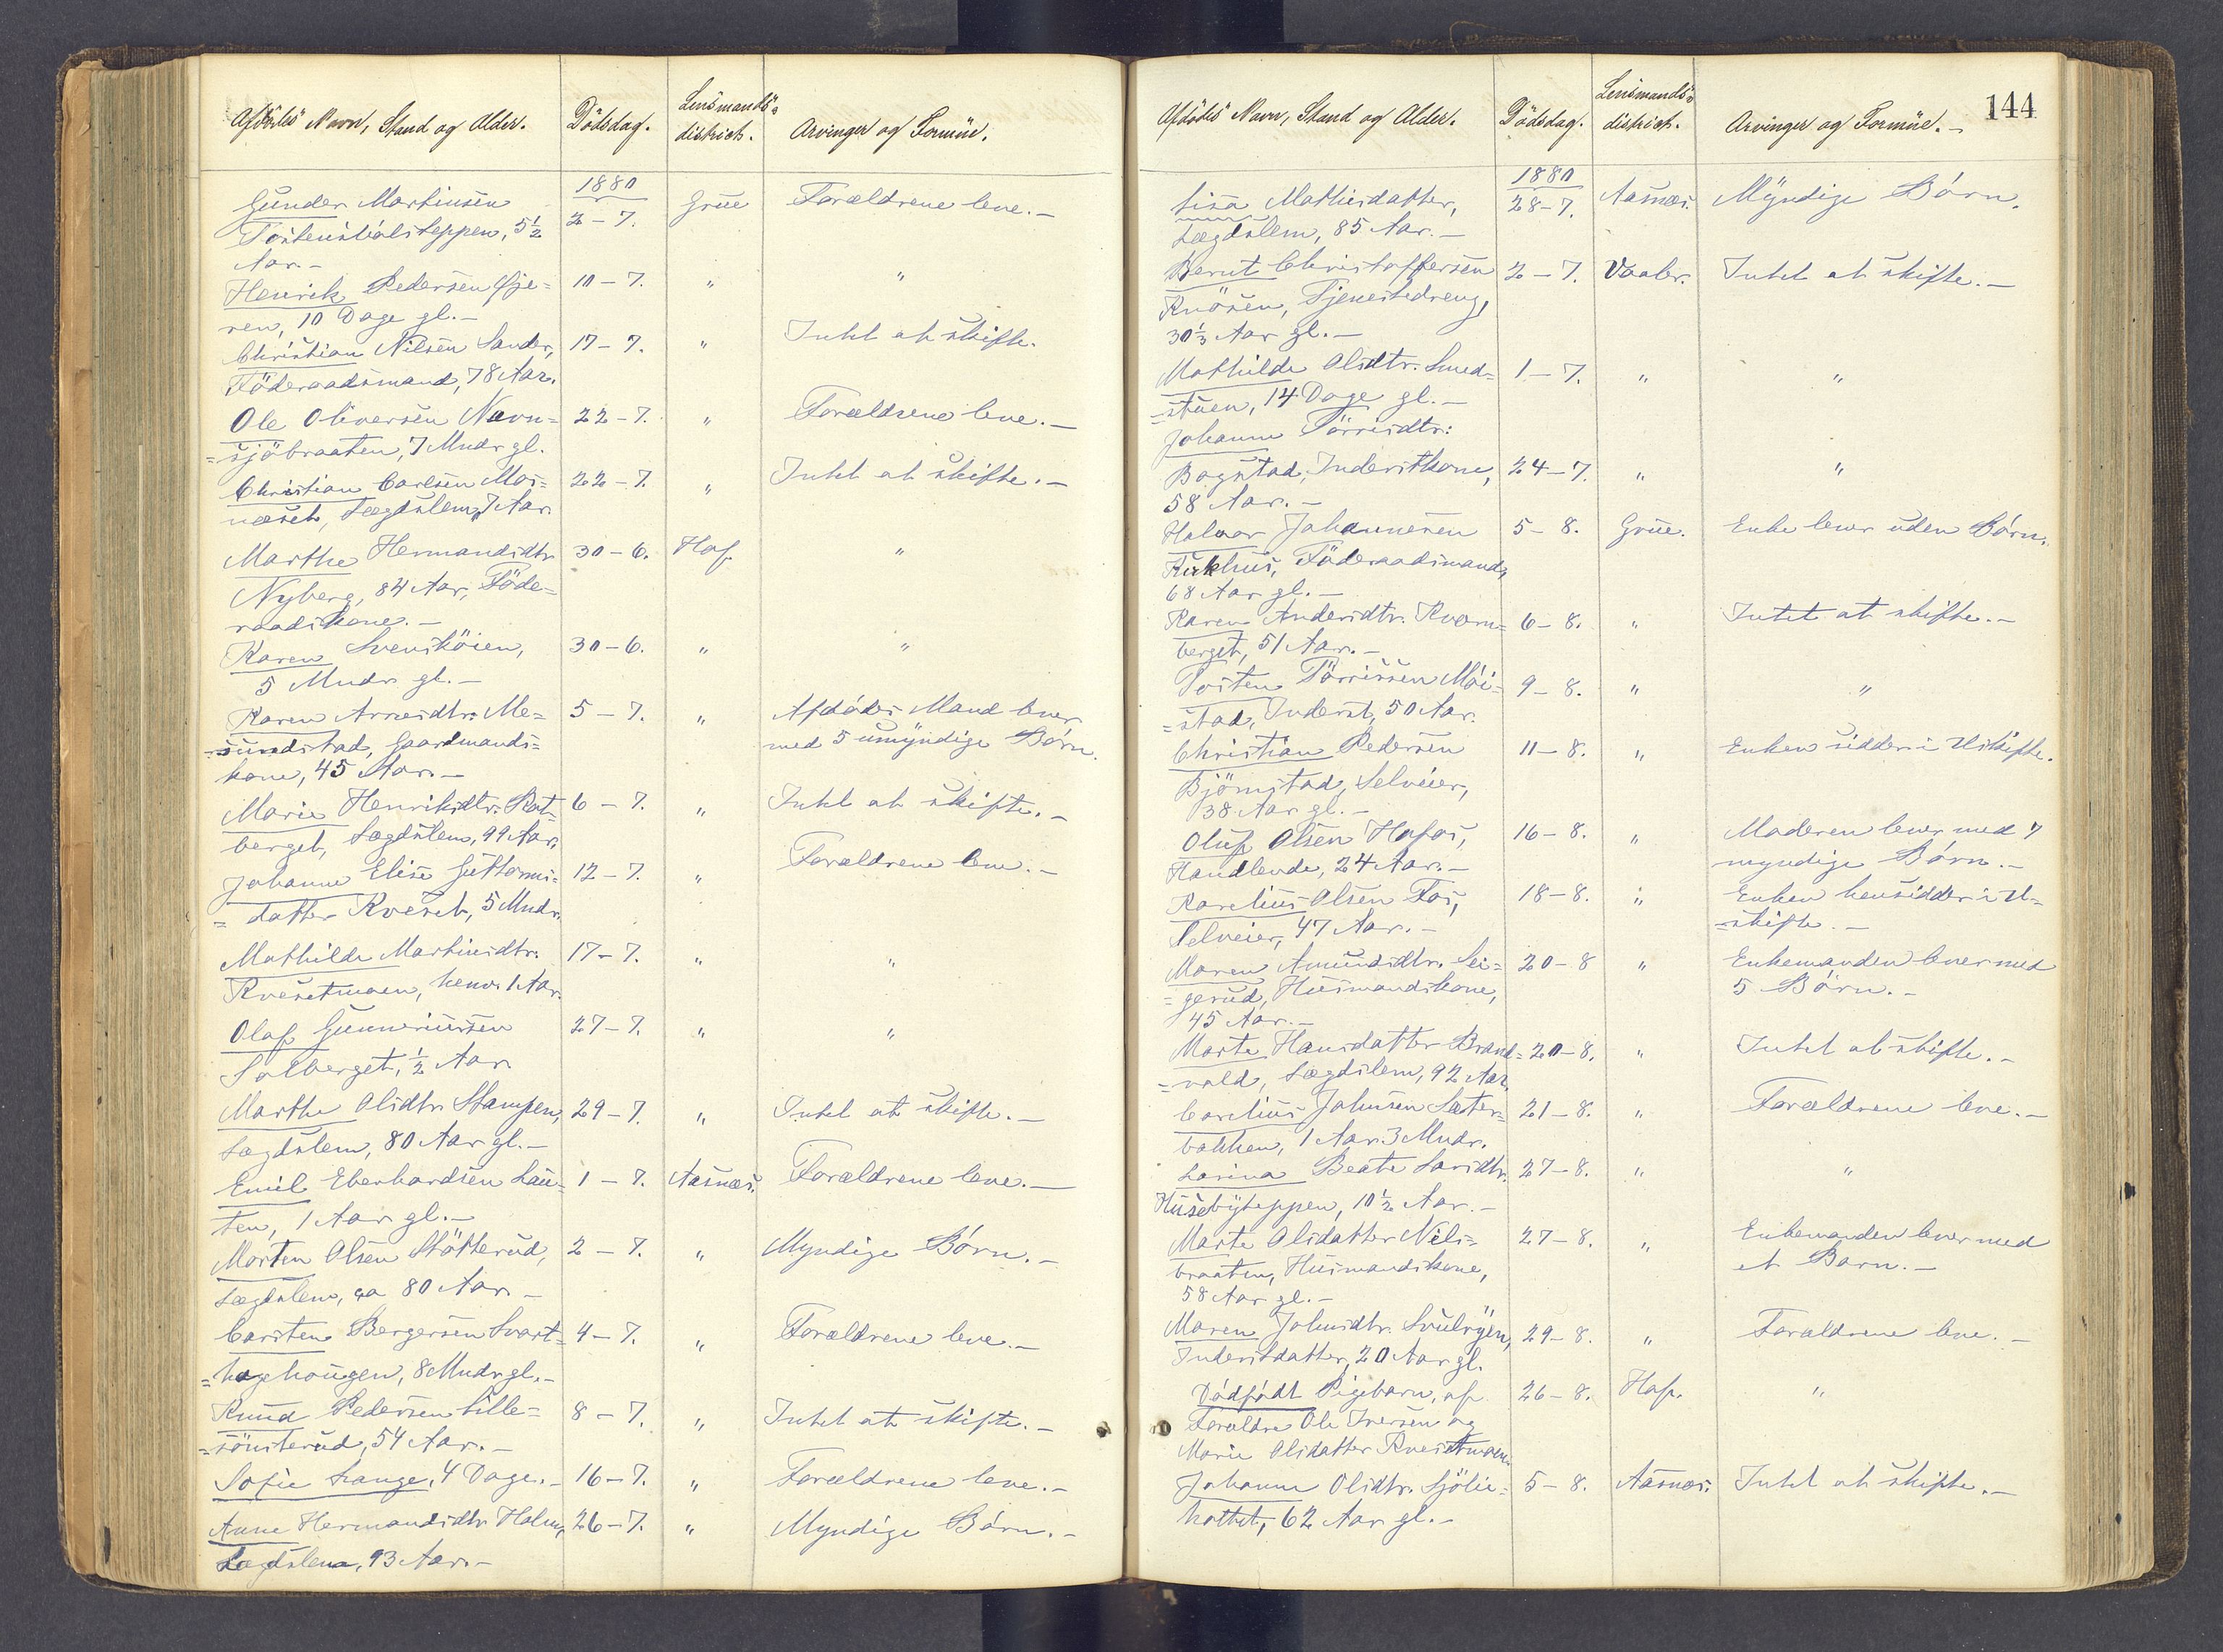 Afdödes Navn, Stand og Alder. Dödsdag. Lensmands= district. Arvinger og Formüe.
1880
Gunder Martinsen 2-7. Grue Forældrene leve.-
5½
Aar.-
Henrik Pedersen Gje= 10-7. " "
ren, 10 Dage gl.-
Christian Nilsen Sander, 17-7. " Intet at skifte.
Föderaadsmand, 78 Aar.
Ole Oliversen Navn= 22-7. " Forældrene leve.-
=sjöbraaten, 7 Mndr gl.
Christian Carlsen Moi= 22-7. " Intet at skifte.-
næset, Lægdslem, 7 Aar.
Marthe Hermandsdtr 30-6. Hof "
Nyberg, 84 Aar, Föde=
raadskone.-
Karen Svensköien, 30-6. " "
5 Mndr gl.-
Karen Arnesdtr. Me= 5-7. " Afdödes Mand lever
=sundstad, Gaardmands= med 5 umyndige Börn.
kone, 45 Aar.-
Marie Henriksdtr. Rot= 6-7. " Intet at skifte.-
berget, Lægdslem, 99 Aar.
Johanne Elise Guttorms= 12-7. " Forældrene leve.-
=datter Kveset, 5 Mndr.
Mathilde Martinsdtr. 17-7. " "
Kvesetmoen, henv. 1 Aar.
Olaf Gunneriussen 27-7. " "
Solberget, ½ Aar.
Marthe Olsdtr. Stampen, 29-7. " Intet at skifte.-
Lægdslem, 80 Aar gl.-
Emil Eberhardsen Lau= 1-7. Aasnæs. Forældrene leve.-
ten, 1 Aar gl.-
Morten Olsen Stötterud, 2-7. " Myndige Börn.-
Lægdslem, ca 80 Aar.-
Carsten Bergersen Svart= 4-7. " Forældrene leve.-
=hagehougen, 8 Mndr gl.-
Knud Pedersen Lille= 8-7. " Intet at skifte.-
=sönsterud, 54 Aar.-
Sofie Lange, 4 Dage.- 16-7. " Forældrene leve.-
Anne Hermandsdtr. Holm, 26-7. " Myndige Börn.-
Lægdslem, 93 Aar.-
144
Afdödes Navn, Stand og Alder. Dödsdag. Lensmands= district. Arvinger og Formüe.-
1880
Lisa Mathisdatter, 28-7. Aasnæs. Myndige Börn.
Lægdslem, 85 Aar.-
Bernt Christoffersen 2-7. Vaaler. Intet at skifte.-
Knösen, Tjenestedreng,
30⅓ Aar gl.-
Mathilde Olsdtr. Smed= 1-7. " "
=stuen, 14 Dage gl.-
Johanne Törrisdtr:
Bogstad, Inderstkone, 24-7. " "
58 Aar.-
Halvor Johannesen 5-8. Grue. Enke lever uden Börn.
Kirkhus, Föderaadsmand,
68 Aar gl.-
Karen Andersdtr. Kværn= 6-8. " Intet at skifte.-
berget, 51 Aar.-
Tosten Törrissen Möi= 9-8. " "
=stad, Inderst, 50 Aar.
Christian Pedersen 11-8. " Enken sidder i Uskifte.
Björnstad, Selveier,
38 Aar gl.-
Oluf Olsen Hofos, 16-8. " Moderen lever med 7
Handlende, 24 Aar.- myndige Börn.-
Karelius Olsen Fos, 18-8. " Enken hensidder i U=
Selveier, 47 Aar.- =skifte.-
Maren Amundsdtr. Sei= 20-8 " Enkemanden lever med
=gerud, Husmandskone, 5 Börn.-
45 Aar.-
Marte Hansdatter Brand= 20-8. " Intet at skifte.-
=vold, Lægdslem, 92 Aar.
Carelius Johnsen Sæter= 21-8. " Forældrene leve.-
bakken, 1 Aar 3 Mndr.
Larina Beate Larsdtr. 27-8. " "
Husebyteppen, 10½ Aar.-
Marte Olsdatter Nils= 27-8. " Enkemanden lever med
braaten, Husmandskone, et Barn.-
58 Aar gl.-
Maren Johnsdtr. Svulryen, 29-8. " Forældrene leve.-
Inderstdatter, 20 Aar gl.
Dödfödt Pigebarn, af 26-8. Hof. "
Forældre Ole Iversen og
Marie Olsdatter Kvesetmoen.
Johanne Olsdtr. Sjölie= 5-8. Aasnæs. Intet at skifte.-
hottet, 62 Aar gl.-